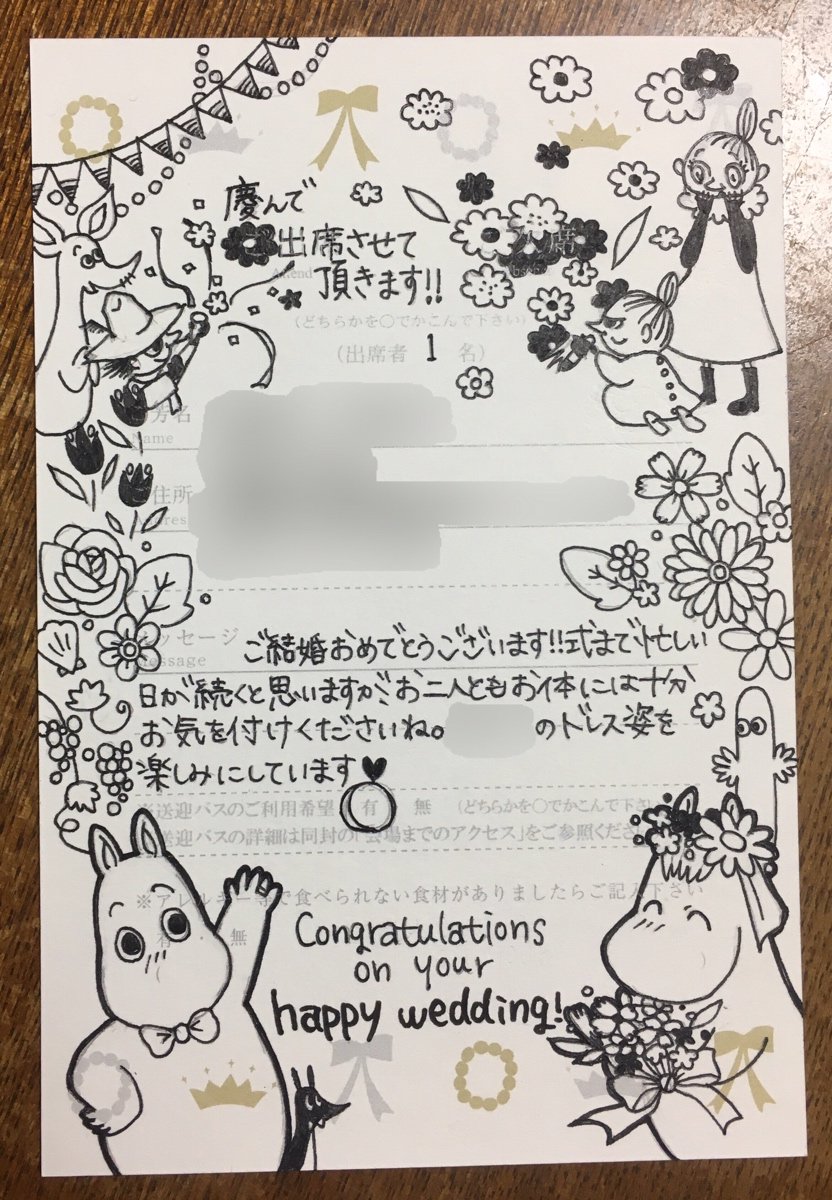 慶んで
出席させて
頂きます!!
席
Attend
(どちらかを○でかこんで下さい)
(出席者 1 名)
芳名
Name
住所
メッセージ ご結婚おめでとうございます!!式まで忙しい
Message
日が続くと思いますが、お二人ともお体には十分
お気を付けくださいね。 のドレス姿を
楽しみにしています
※送迎バスのご利用希望 有 無 (どちらかを○でかこんで下さ
送迎バスの詳細は同封の「会場までのアクセス」をご参照くださ
※アレルギー等で食べられない食材がありましたらご記入下さい
有 ・ 無
Congratulations
on your
happy wedding!